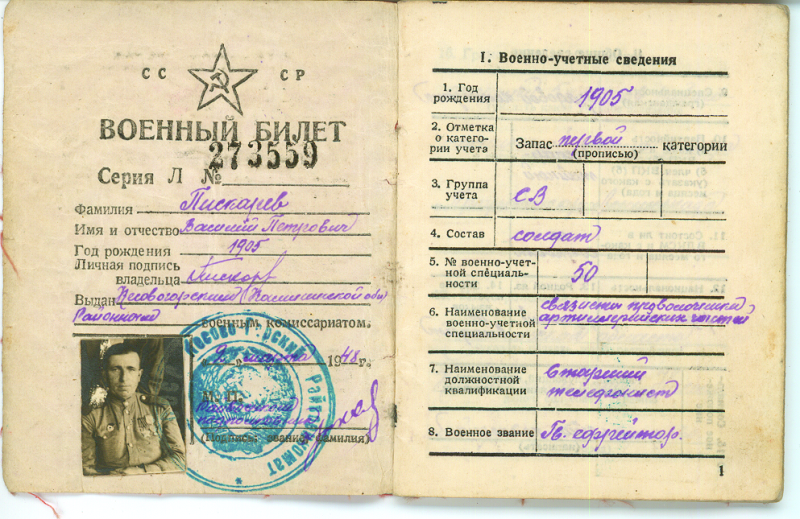 СС СР
ВОЕННЫЙ БИЛЕТ
273559
Серия Л №
Фамилия Пискарев
Имя и отчество Василий Петрович
Год рождения 1905
Личная подпись
владельца Пискарев
Выдан Несвогорским (Калининской обл)
Районным военным комиссариатом.
марта 1948 г.
М. П.
Райвоенком
подполковник
(Подпись, звание, фамилия)
Райвоенкомат
I. Военно-учетные сведения
1. Год
рождения 1905
2. Отметка
о катего-
рии учета
Запас первой категории
(прописью)
3. Группа
учета СВ
4. Состав солдат
5. № военно-учет-
ной специаль-
ности 50
6. Наименование
военно-учетной
специальности
связисты проволочники
артиллерийских частей
7. Наименование
должностной
квалификации
старший
телефонист
8. Военное звание Гв. ефрейтор.
1